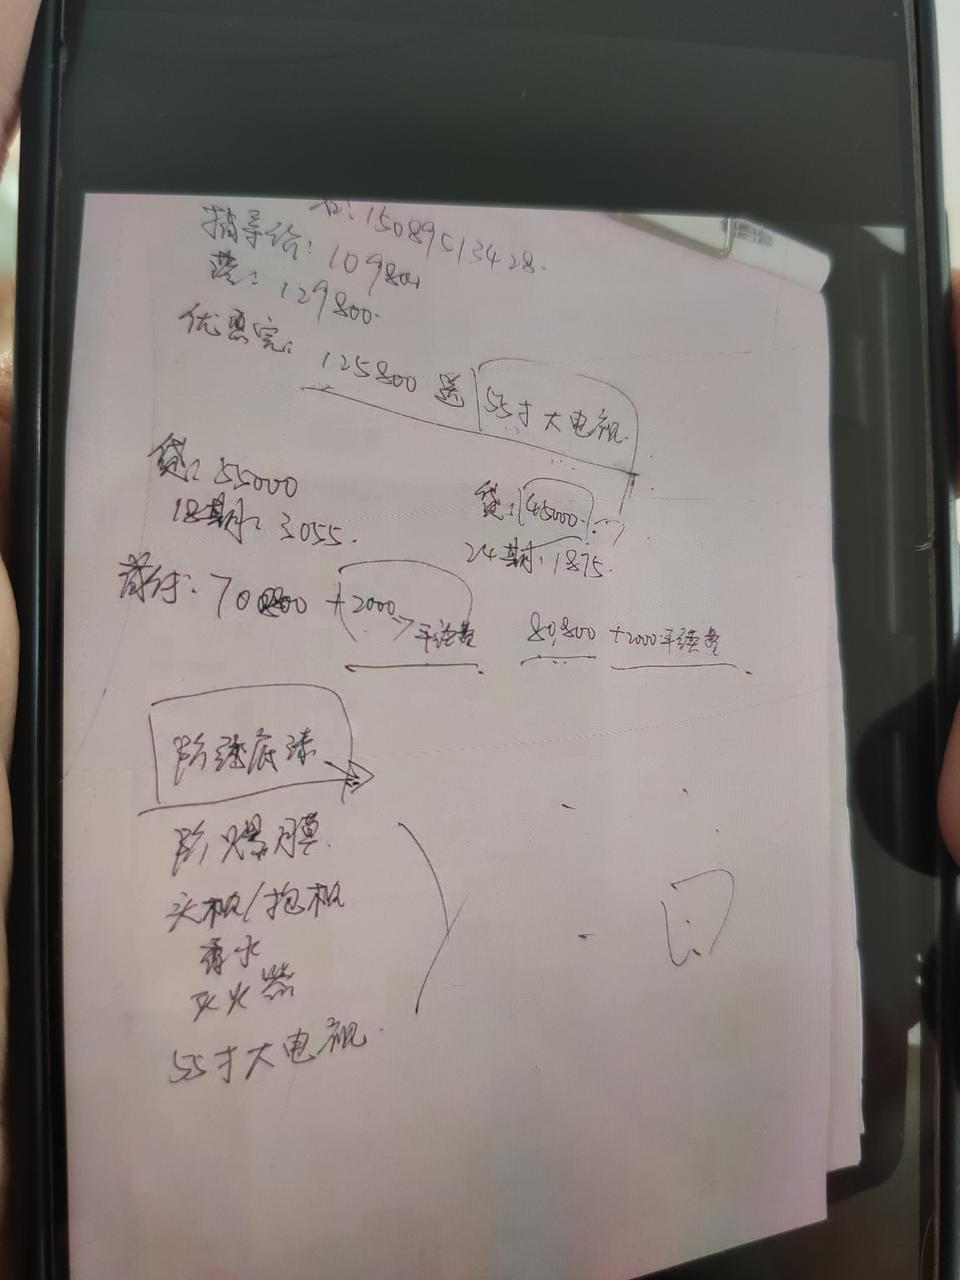 15089513428.
指导价: 109800
落: 129800.
优惠完: 125800 送 55寸大电视.
贷: 55000
18期: 3055.
首付: 70800 +2000 → 手续费
贷: 45000.
24期: 1875.
80,800 +2000手续费
底漆
防爆膜
头枕/抱枕
香水
灭火器
55寸大电视.